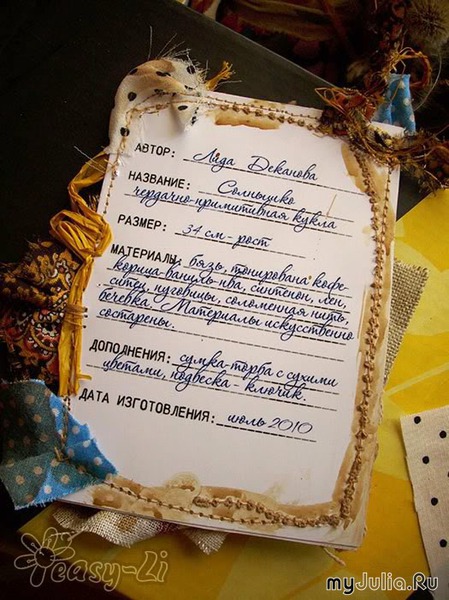 АВТОР: Лида Деканова
НАЗВАНИЕ: Солнышко
чердачно-примитивная кукла
РАЗМЕР: 34 см-рост
МАТЕРИАЛЫ: бязь, тонирована кофе-
корица-ваниль-пва, синтепон, лен,
ситец, пуговицы, соломенная нить,
бечевка. Материалы искусственно
состарены.
ДОПОЛНЕНИЯ: сумка-торба с сухими
цветами, подвеска - ключик.
ДАТА ИЗГОТОВЛЕНИЯ: июль 2010
easy-Li
myJulia.Ru